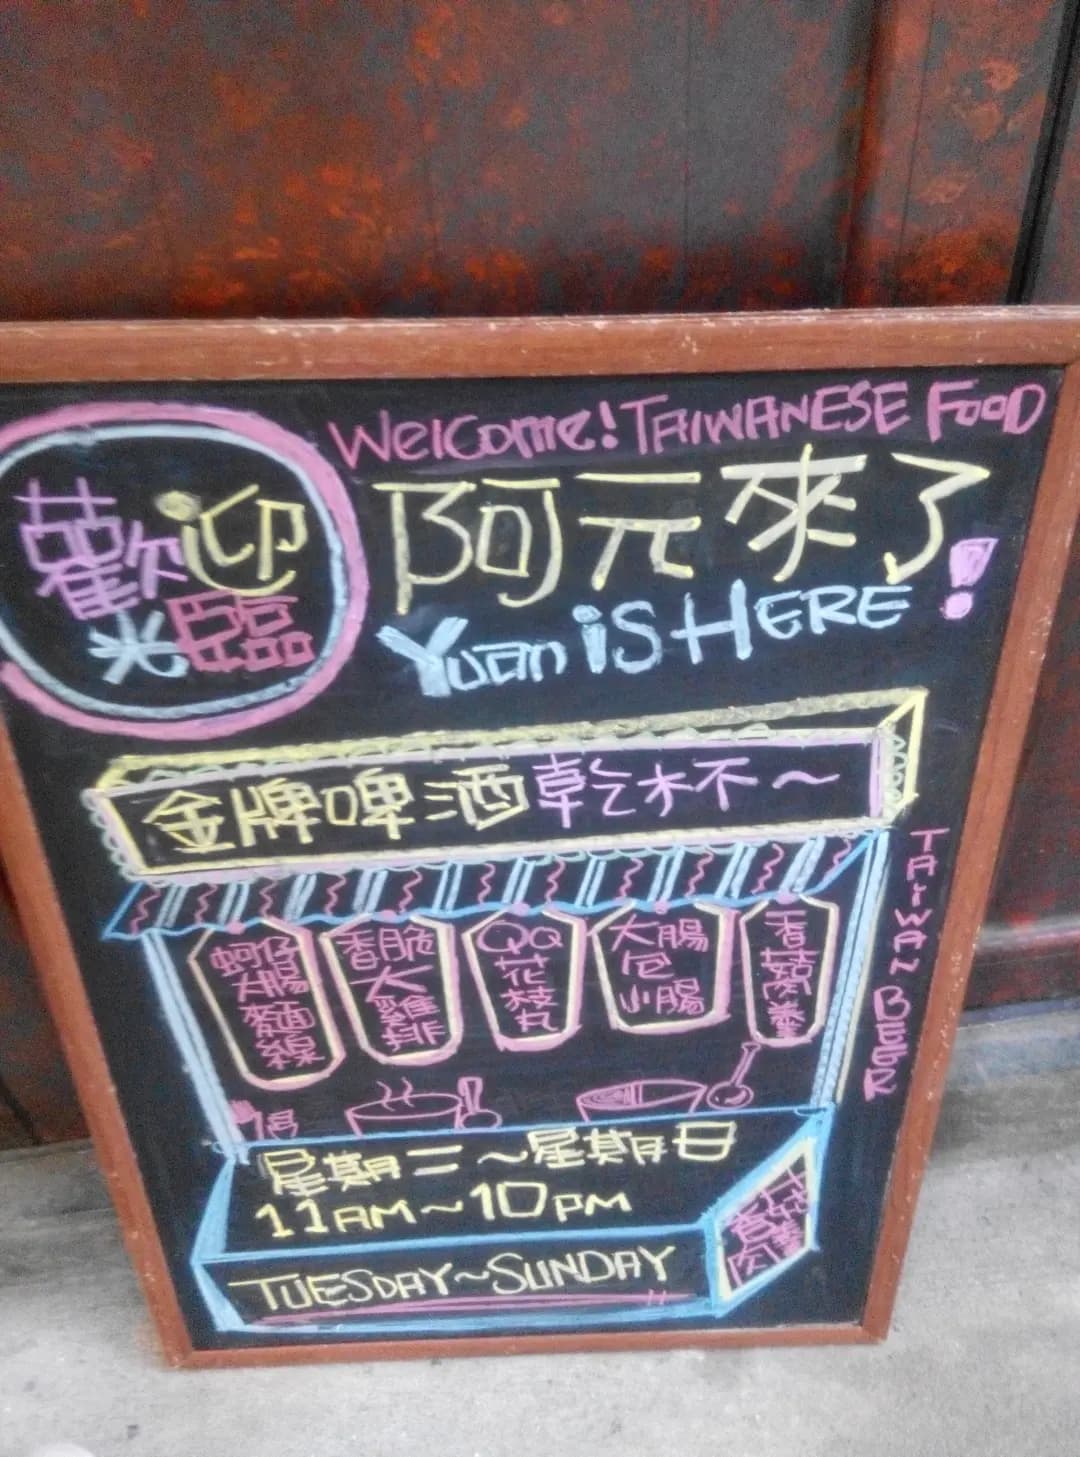 Welcome! TAIWANESE FOOD
歡迎
光臨
阿元來了!
Yuan iS HERE
金牌啤酒乾杯不～
蚵仔大腸麵線
香脆大雞排
QQ花枝丸
大腸包小腸
香菇肉羹
TAIWAN BEER
星期二～星期日
11AM～10PM
TUESDAY～SUNDAY